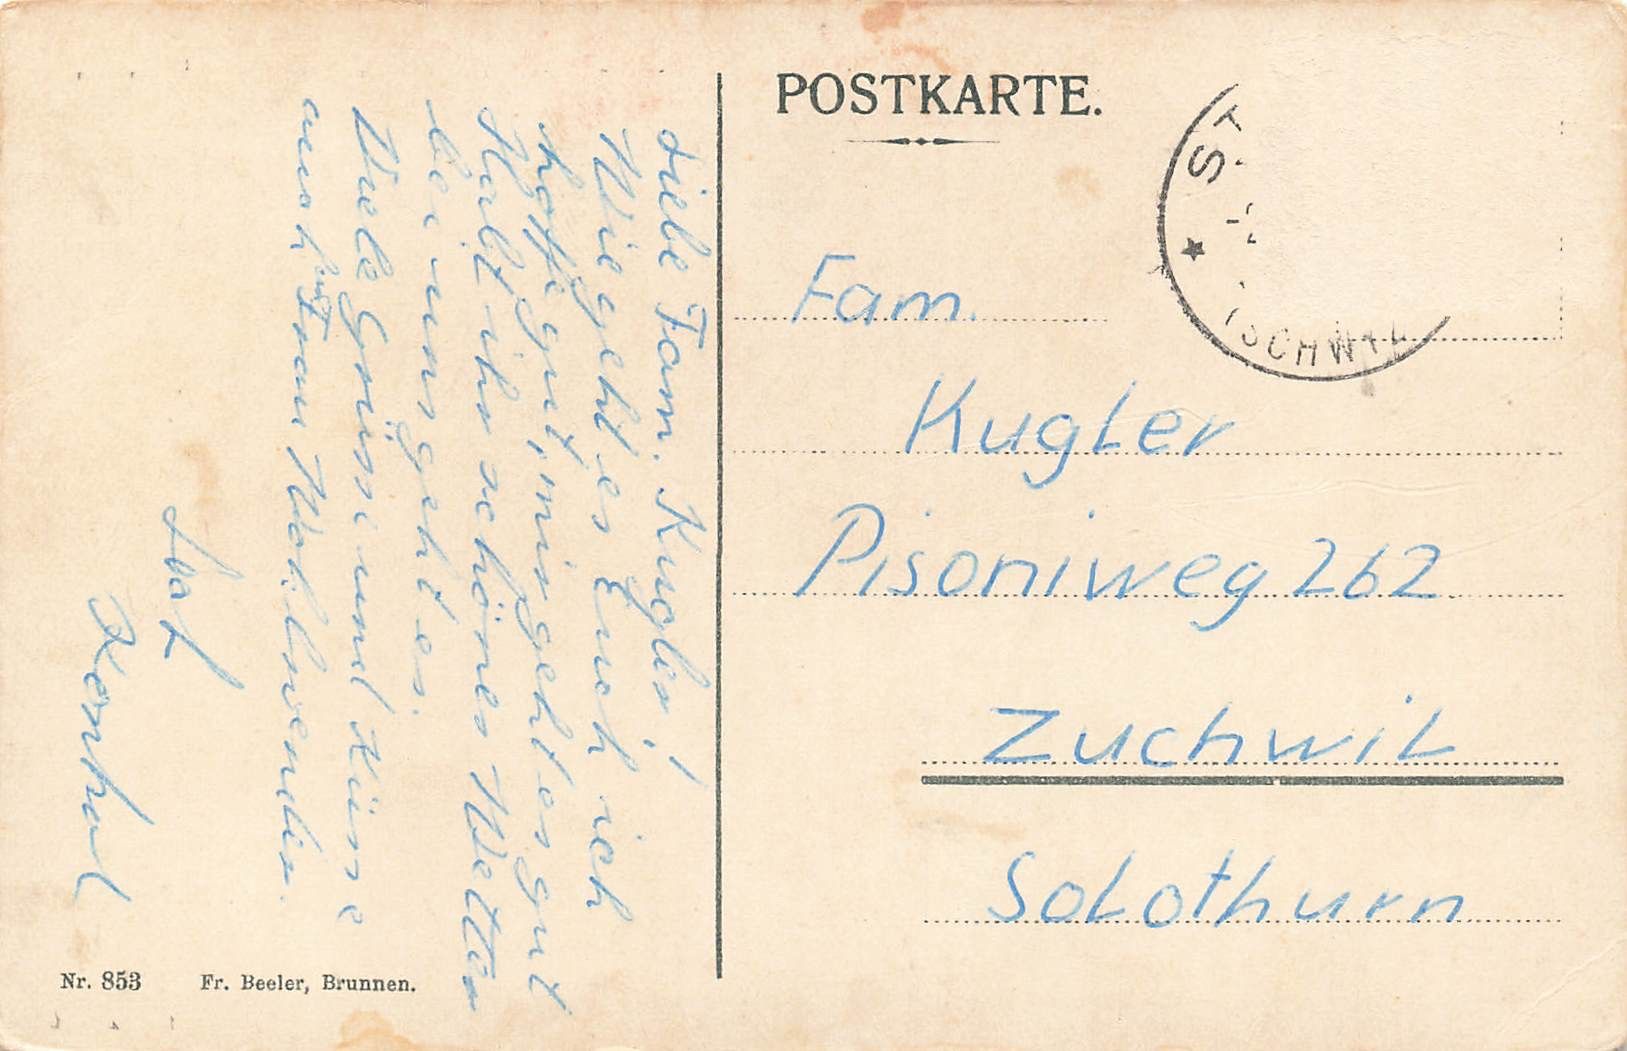 POSTKARTE.
Liebe Fam. Kugler!
Wie geht es Euch ich
hoffe gut, mir geht es gut
Habt ihr schönes Wetter
bei uns geht es.
Viele Grüsse und Küsse
auch Frau
Fam.
Kugler
Pisoniweg 262
Zuchwil
Solothurn
Nr. 853 Fr. Beeler, Brunnen.